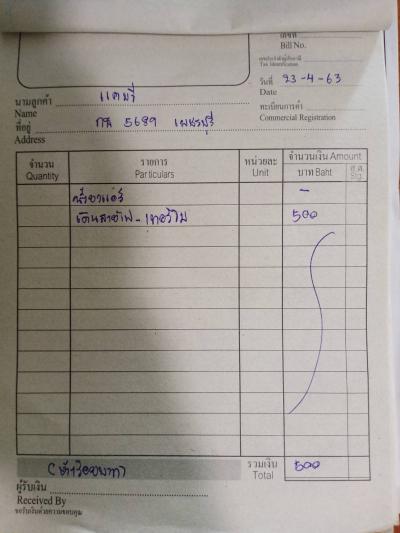 เลขที่
Bill No.
เลขประจำตัวผู้เสียภาษี
Tax Identification
วันที่ 23-4-63
Date
นามลูกค้า แคมรี่
Name
ทะเบียนการค้า
Commercial Registration
ที่อยู่ กน 5689 เพชรบุรี
Address
จำนวน รายการ หน่วยละ จำนวนเงิน Amount
Quantity Particulars Unit บาท Baht ส.ต. Stg.
-
เดินสายไฟ - 500
รวมเงิน 500
Total
(ห้าร้อยบาท)
ผู้รับเงิน
Received By
ขอรับเงินด้วยความขอบคุณ